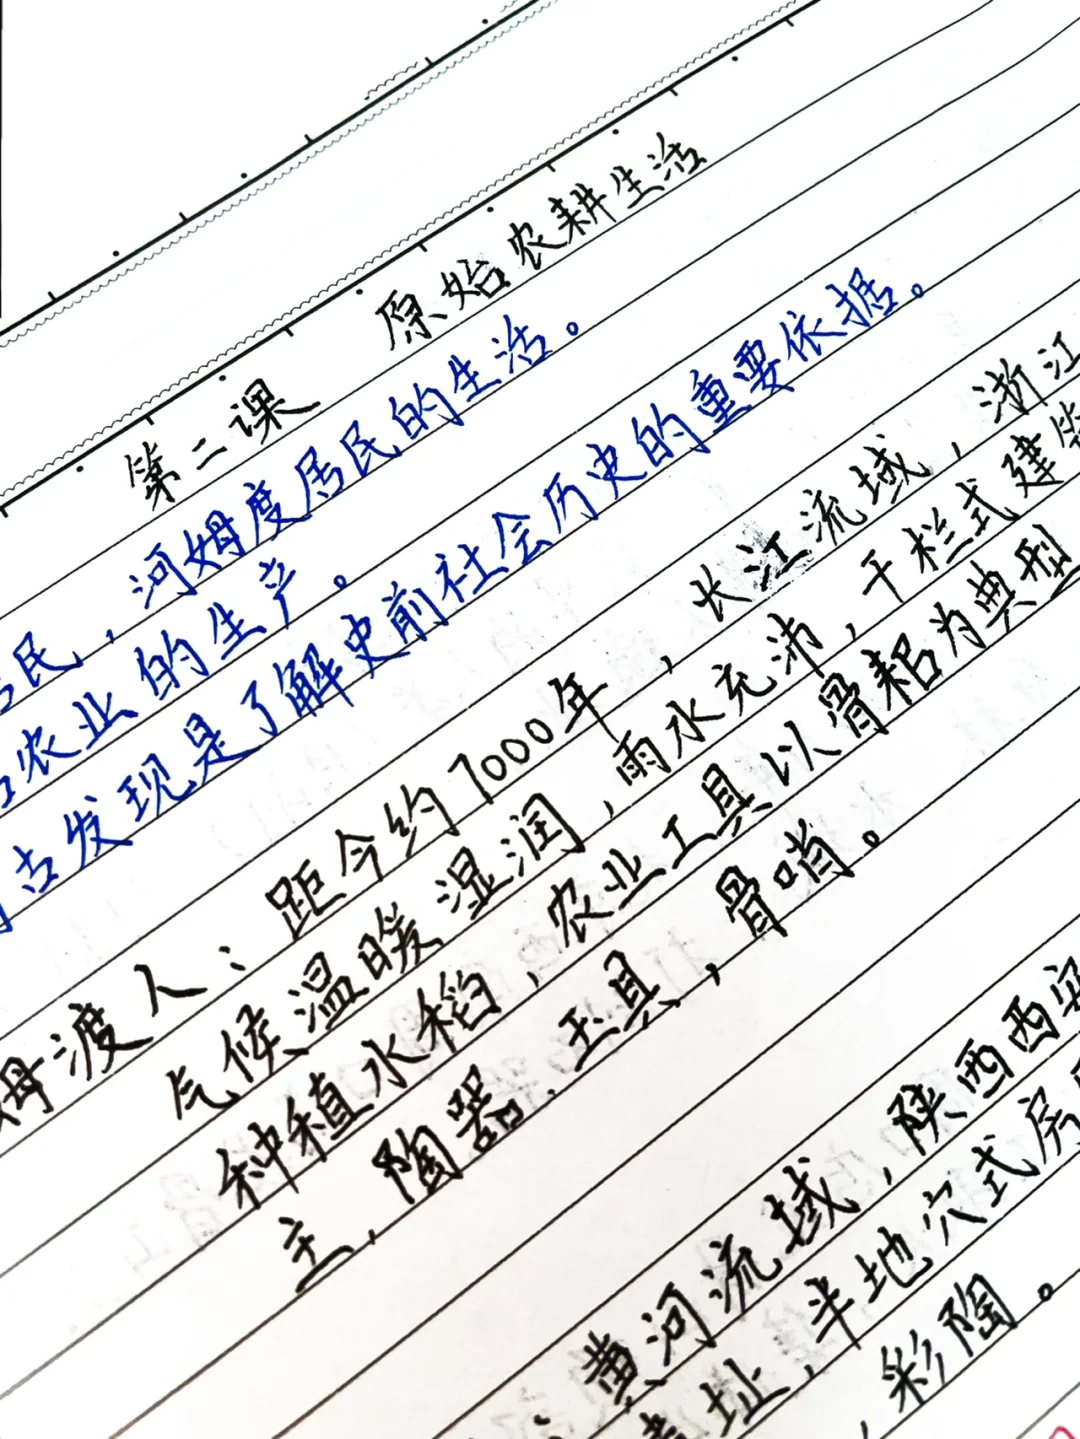 第二课 原始农耕生活
民，河姆度居民的生活。
农业的生产。
古发现是了解史前社会历史的重要依据。
姆渡人：距今约7000年，长江流域，浙江
气候温暖湿润，雨水充沛，干栏式建筑
种植水稻，农业工具以骨耜为典型
主，陶器，玉具，骨哨。
黄河流域，陕西西安
遗址，半地穴式房
，彩陶。